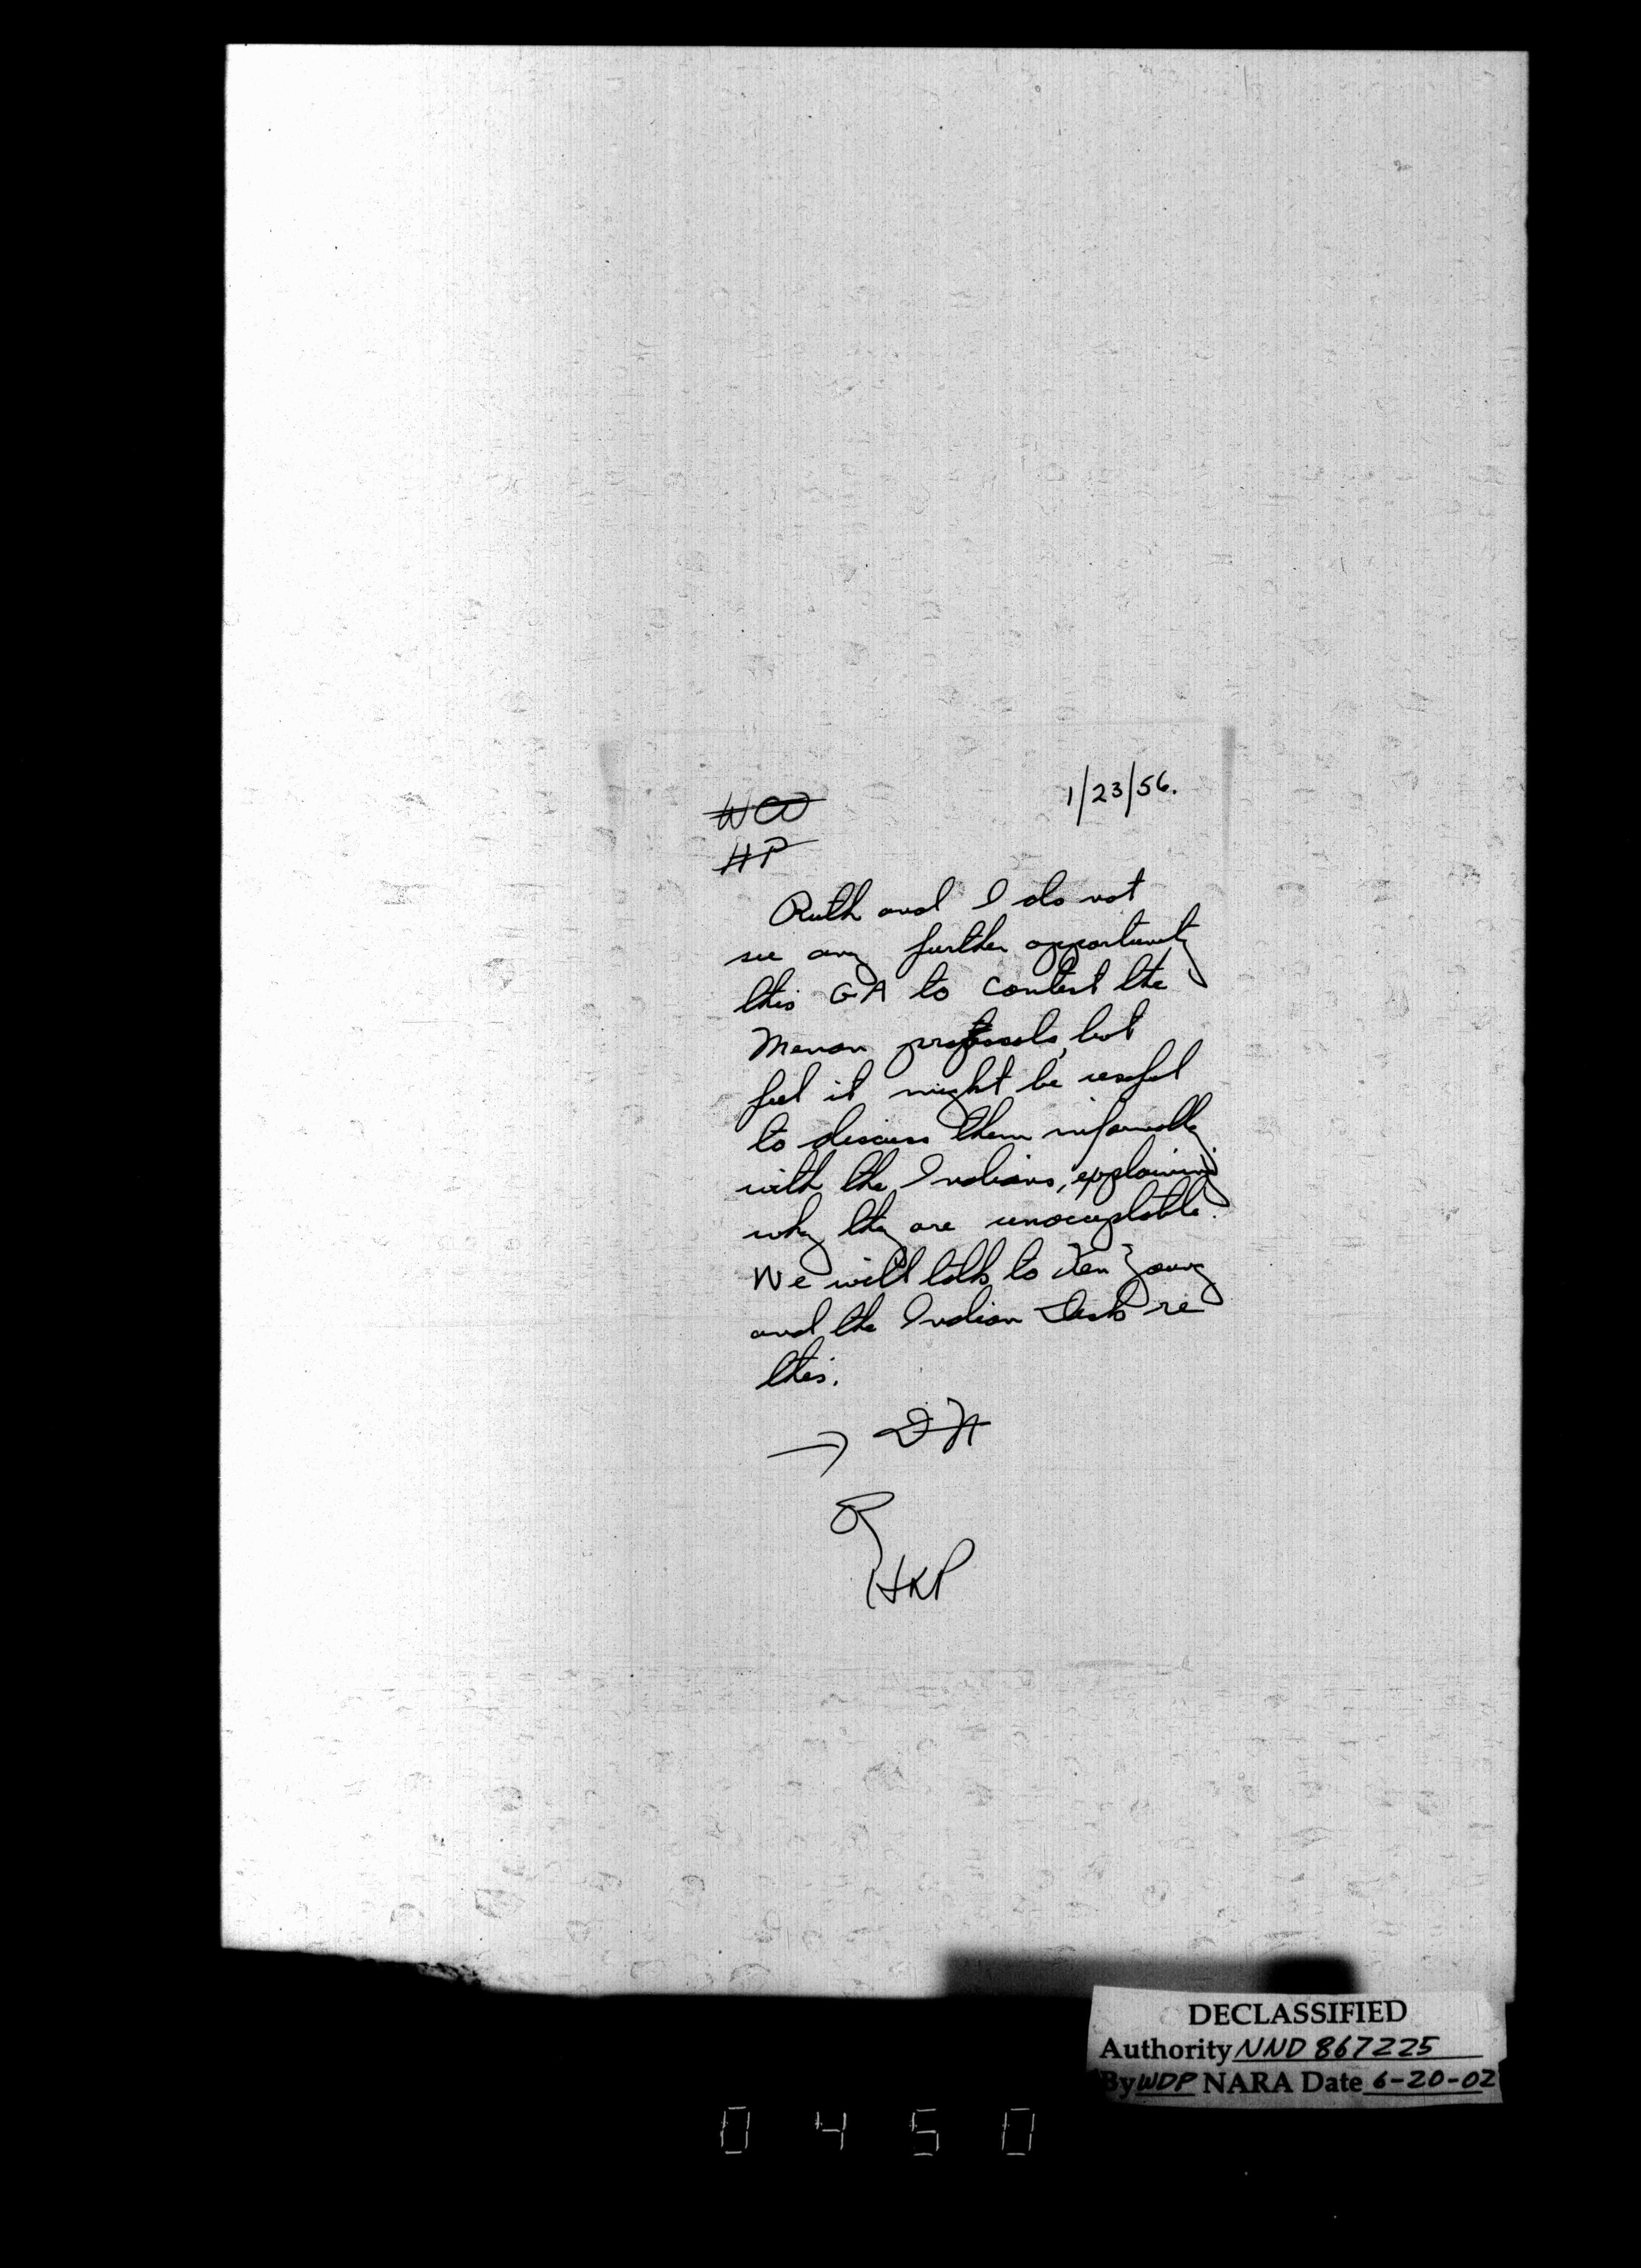 1/23/56.
WCO
HP
Ruth and I do not
see any further opportunity
this GA to contest the
Menon proposals, but
feel it might be useful
to discuss them informally
with the Indians, explaining
why they are unacceptable.
We will talk to Ken Young
and the Indian Desk re
this.
→ DH
HKP
DECLASSIFIED
Authority NND 867225
By WDP NARA Date 6-20-02
0450